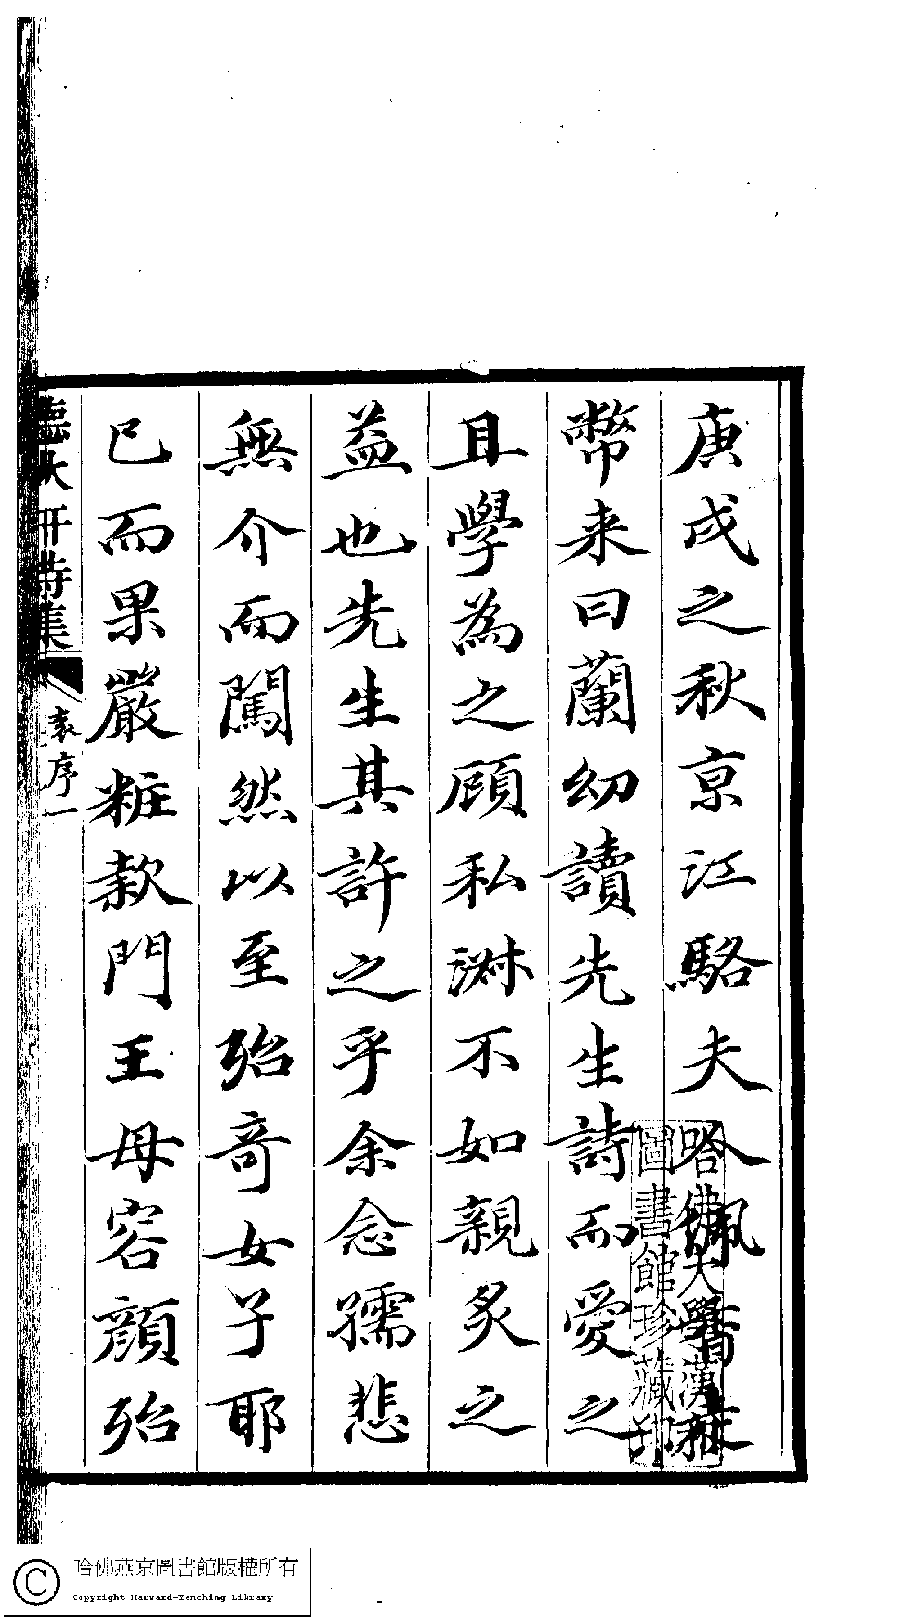 庚戌之秋京江駱夫人佩香
幣来曰蘭幼讀先生詩而愛之
且學為之顧私淑不如親炙之
益也先生其許之乎余念孺悲
無介而闖然以至殆奇女子耶
已而果嚴粧款門王母容顏殆
聽秋軒詩集
袁序
一
哈佛大學漢和
圖書館珍藏印
哈佛燕京圖書館版權所有
Copyright Harvard-Yenching Library